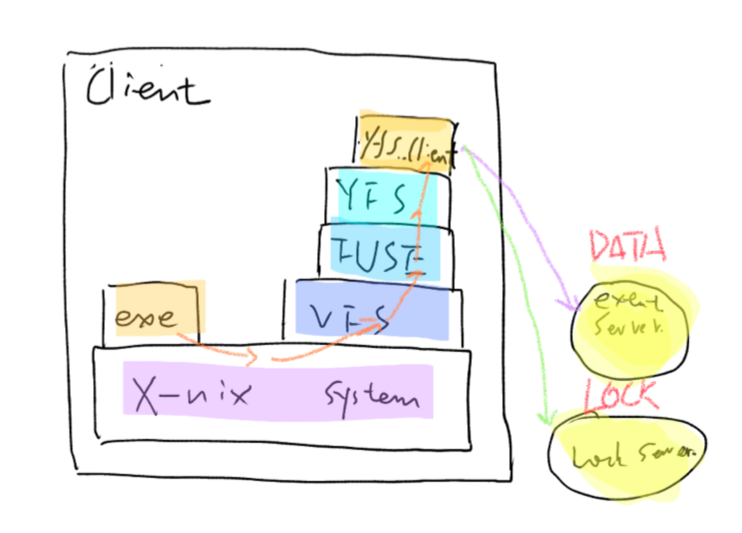 Client
yfs_client
YFS
FUSE
exe
VFS
X-nix system
DATA
extent
server.
LOCK
Lock Server.